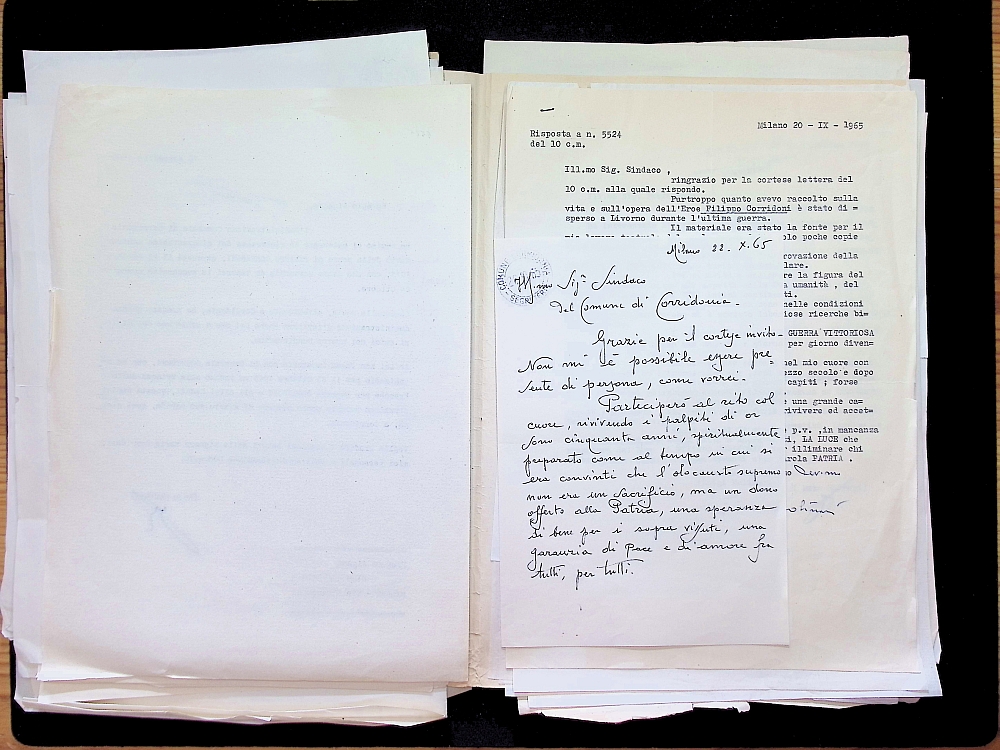 Milano 20 - IX - 1965
Risposta a n. 5524
del 10 c.m.
Ill.mo Sig. Sindaco ,
ringrazio per la cortese lettera del
10 c.m. alla quale rispondo.
Purtroppo quanto avevo raccolto sulla
vita e sull'opera dell'Eroe Filippo Corridoni è stato di =
sperso a Livorno durante l'ultima guerra.
Il materiale era stato la fonte per il
olo poche copie
rovazione della
lare.
re la figura del
a umanità , del
ti.
nelle condizioni
iose ricerche bi=
GUERRA VITTORIOSA
per giorno diven=
nel mio cuore con
ezzo secolo e dopo
capiti ; forse
una grande ca=
rivivere ed accet=
p.v. ,in mancanza
i, LA LUCE che
illiminare chi
rola PATRIA .
Milano 22. X. 65
Ill.mo Sig.r Sindaco
del Comune di Corridonia.
Grazie per il cortese invito.
Non mi è possibile essere pre=
sente di persona, come vorrei.
Parteciperò al rito col
cuore, rivivendo i palpiti di or
sono cinquanta anni, spiritualmente
preparato come al tempo in cui si
era convinti che l'olocausto supremo
non era un sacrificio, ma un dono
offerto alla Patria, una speranza
si bene per i sopra vissuti, una
garanzia di Pace e di amore fra
tutti, per tutti.